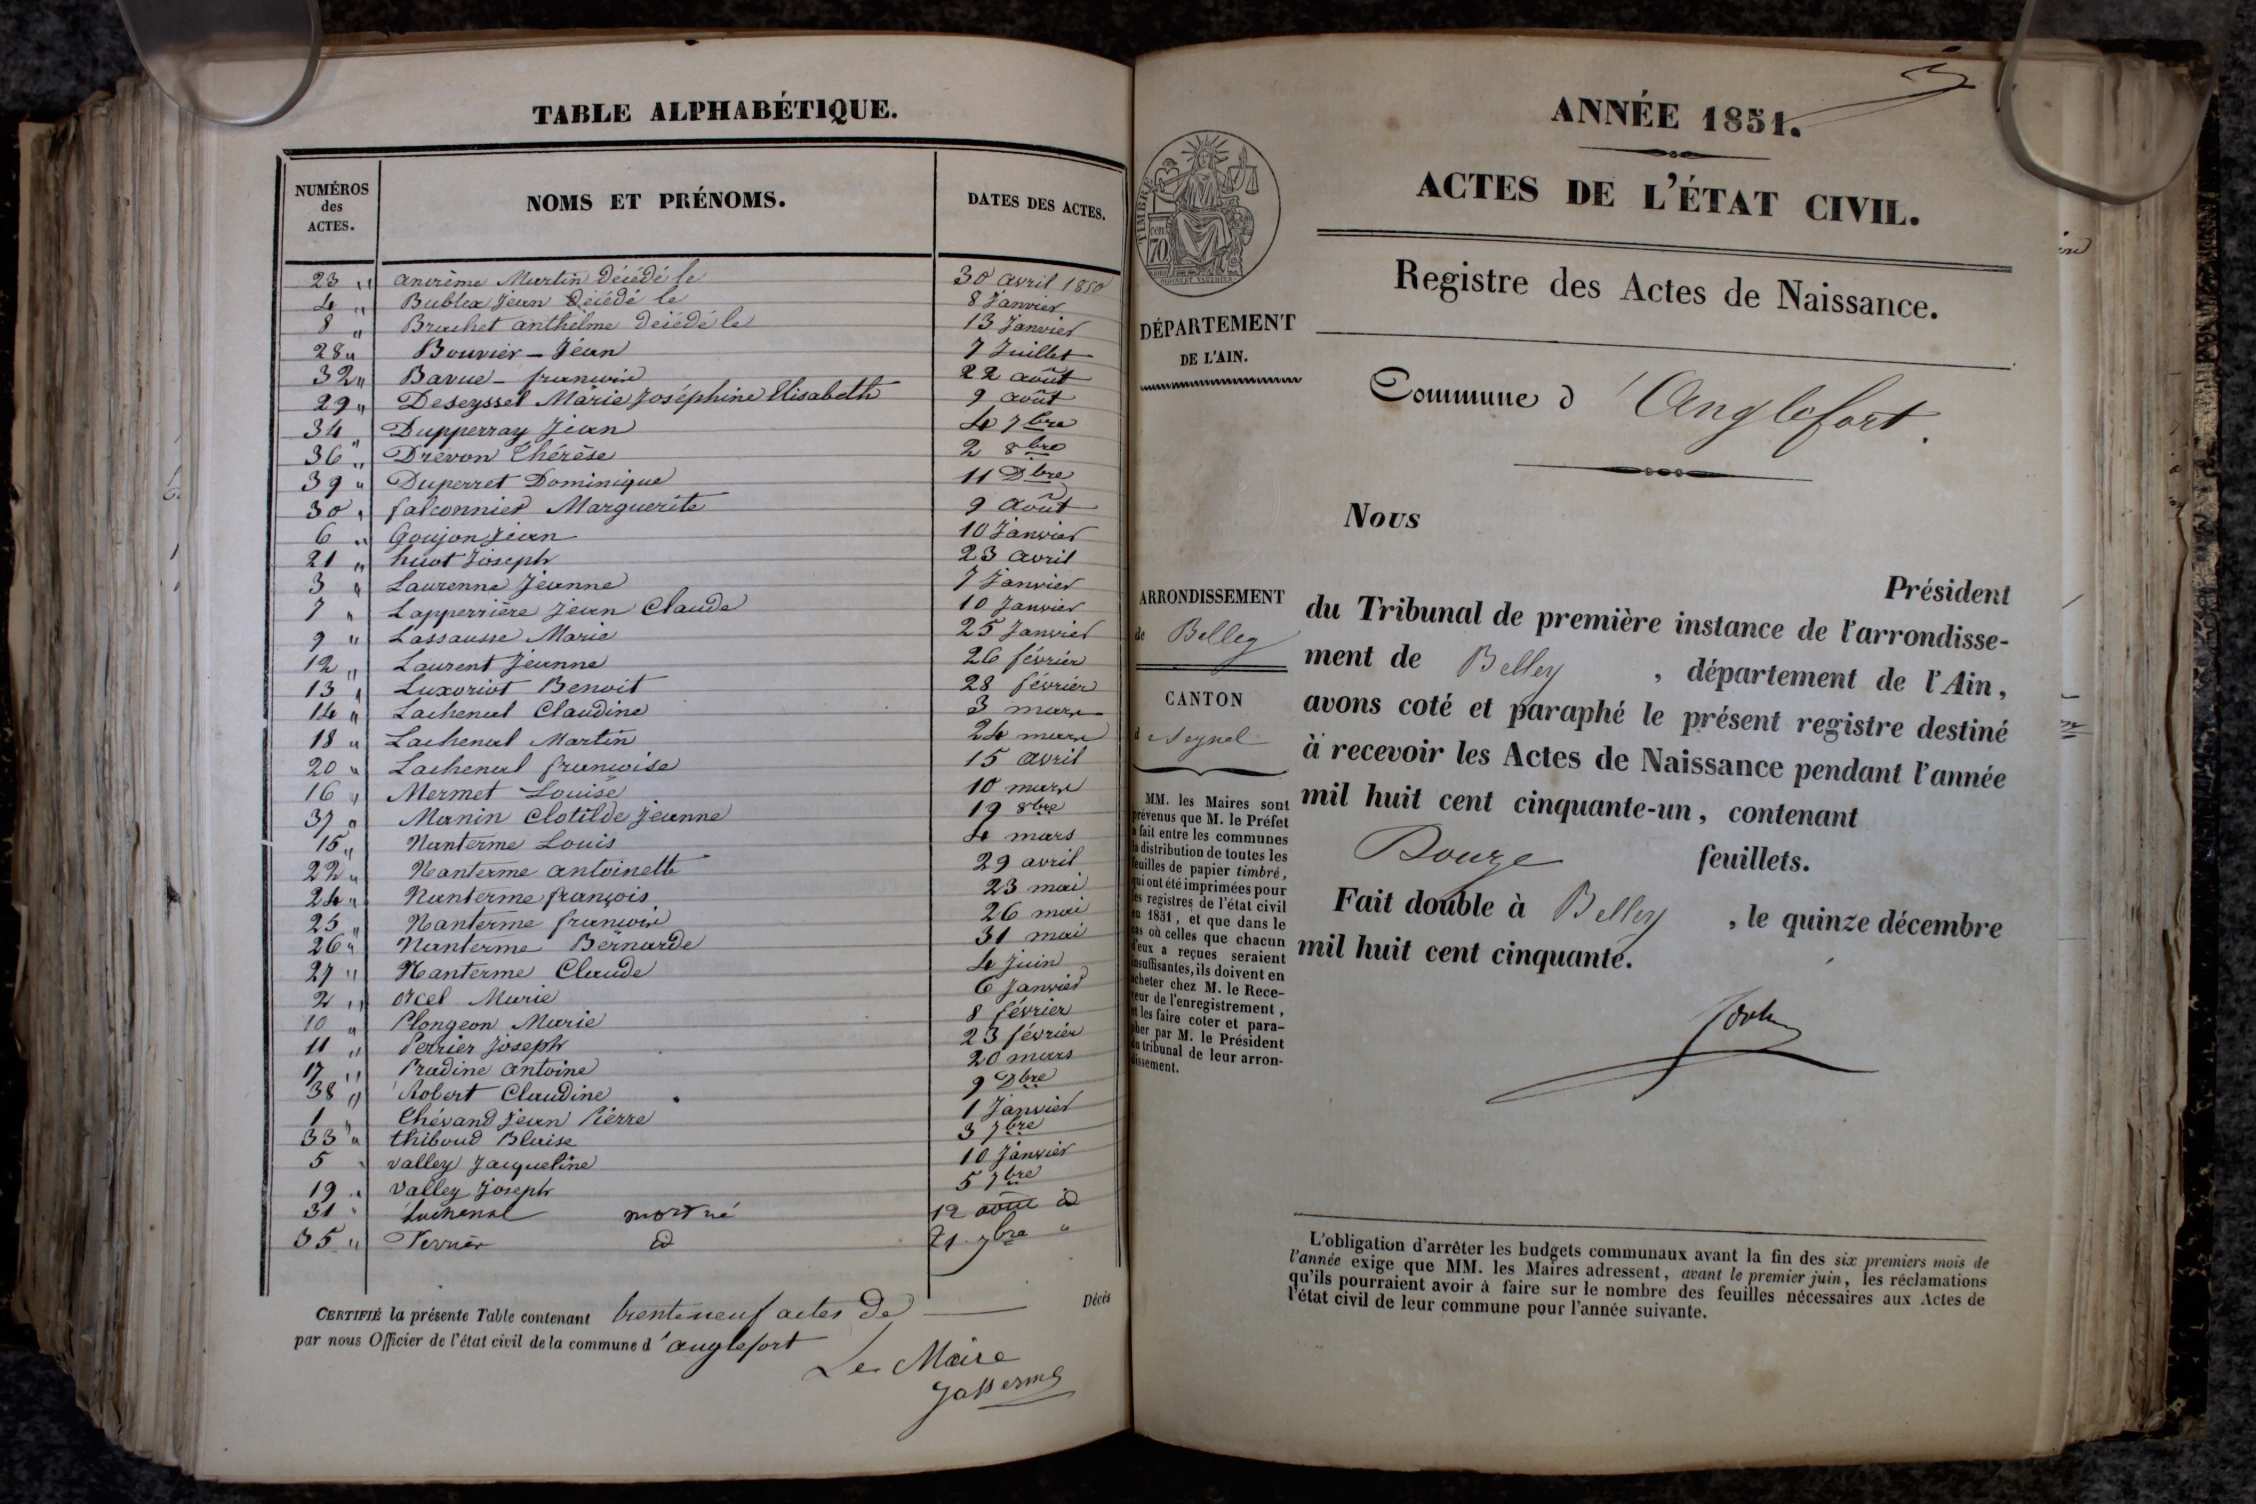 TABLE ALPHABÉTIQUE.
NUMÉROS des ACTES.
NOMS ET PRÉNOMS.
DATES DES ACTES.
23 " Ancrème Martin décédé le 30 avril 1850
4 " Bublex Jean décédé le 8 Janvier
8 " Brachet anthelme décédé le 13 Janvier
28 " Bouvier - Jéan 7 Juillet
32 " Bavue - 22 août
29 " Deseyssel Marie Joséphine Elisabeth 9 août
34 " Dupperray Jean 4 7bre
36 " Drevon Thérèse 2 8bre
39 " Duperret Dominique 11 Dbre
30 " falconnier Marguerite 9 Août
6 " Goujon Jean 10 Janvier
21 " huot Joseph 23 avril
3 " Laurenne Jeanne 7 Janvier
7 " Lapperrière Jean Claude 10 Janvier
9 " Lassausse Marie 25 Janvier
12 " Laurent Jeanne 26 février
13 " Luxoriot Benoit 28 février
14 " Lachenal Claudine 3 mars
18 " Lachenal Martin 24 mars
20 " Lachenal françoise 15 avril
16 " Mermet Louise 10 mars
37 " Manin Clotilde Jeanne 19 8bre
15 " Nanterme Louis 4 mars
22 " Nanterme antoinette 29 avril
24 " Nanterme françois 23 mai
25 " Nanterme 26 mai
26 " Nanterme Bernarde 31 mai
27 " Nanterme Claude 4 Juin
2 " orcel Marie 6 Janvier
10 " Plongeon Marie 8 février
11 " Perrier Joseph 23 février
17 " Pradine antoine 20 mars
38 " Robert Claudine 9 Dbre
1 " Thévand Jean Pierre 1 Janvier
33 " thiboud Blaise 3 7bre
5 " valley Jacqueline 10 Janvier
19 " valley Joseph 5 7bre
31 " Lachenal mort né 12 août id
35 " id 21 7bre "
CERTIFIÉ la présente Table contenant trente neuf actes de Décès
par nous Officier de l'état civil de la commune d'anglefort
Le Maire
ANNÉE 1851.
ACTES DE L'ÉTAT CIVIL.
Registre des Actes de Naissance.
TIMBRE
70 cent
DÉPARTEMENT
DE L'AIN.
Commune d'Anglefort.
Nous
Président
ARRONDISSEMENT
de Belley
CANTON
de Seyssel
du Tribunal de première instance de l'arrondisse-
ment de Belley , département de l'Ain,
avons coté et paraphé le présent registre destiné
à recevoir les Actes de Naissance pendant l'année
mil huit cent cinquante-un, contenant
Douze feuillets.
Fait double à Belley , le quinze décembre
mil huit cent cinquante.
MM. les Maires sont
prévenus que M. le Préfet
a fait entre les communes
la distribution de toutes les
feuilles de papier timbré,
qui ont été imprimées pour
les registres de l'état civil
en 1851, et que dans le
cas où celles que chacun
d'eux a reçues seraient
insuffisantes, ils doivent en
acheter chez M. le Rece-
veur de l'enregistrement,
et les faire coter et para-
pher par M. le Président
du tribunal de leur arron-
dissement.
L'obligation d'arrêter les budgets communaux avant la fin des six premiers mois de
l'année exige que MM. les Maires adressent, avant le premier juin, les réclamations
qu'ils pourraient avoir à faire sur le nombre des feuilles nécessaires aux Actes de
l'état civil de leur commune pour l'année suivante.